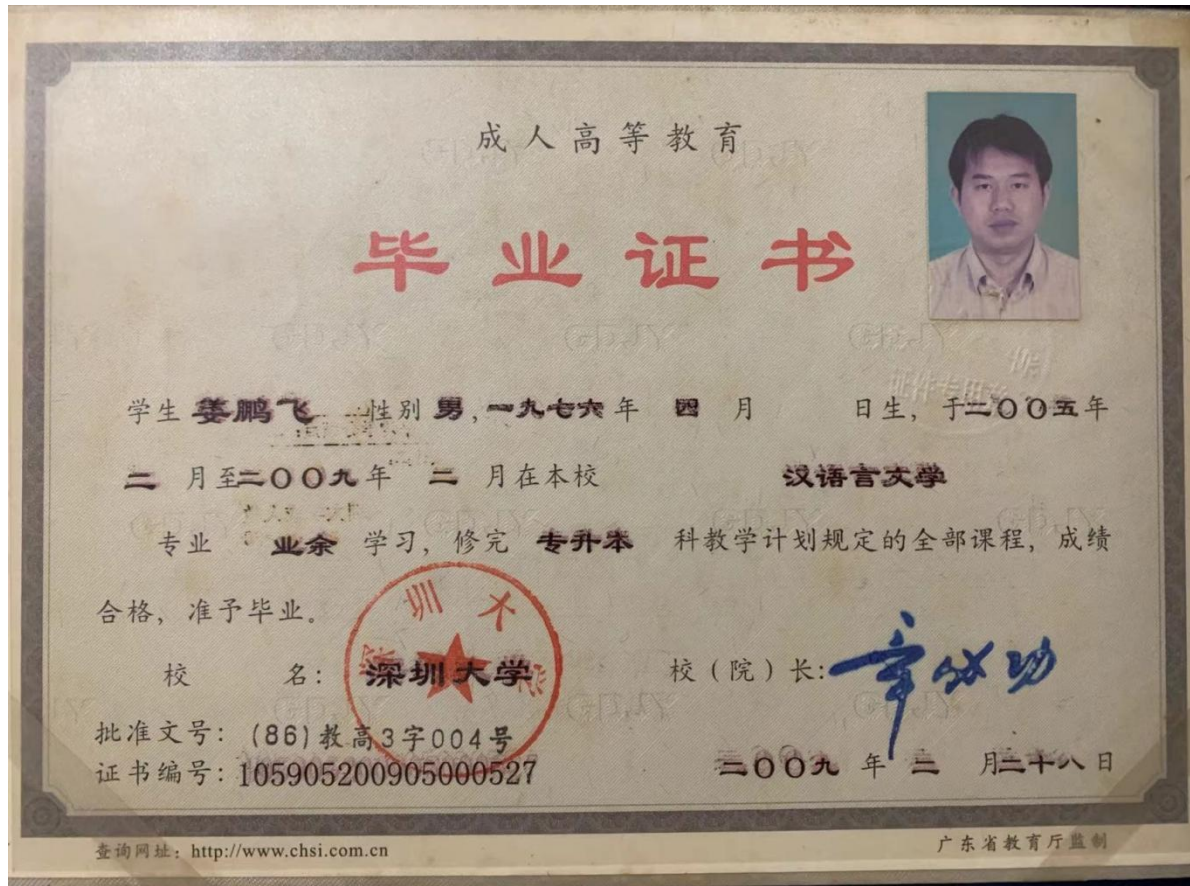 成人高等教育
毕业证书
学生 姜鹏飞 性别 男,一九七六年 四 月 日生，于二〇〇五年
二 月至二〇〇九年 二 月在本校 汉语言文学
专业 业余 学习，修完 专升本 科教学计划规定的全部课程，成绩
合格，准予毕业。
校 名：深圳大学 校（院）长:章必功
深圳大学
批准文号：(86)教高3字004号
证书编号：105905200905000527 二〇〇九 年 二 月二十八日
查询网址：http://www.chsi.com.cn 广东省教育厅监制